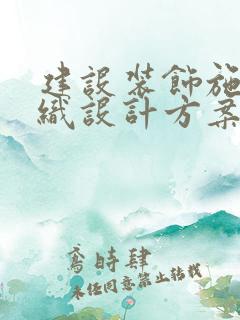 建設裝飾施
織設計方案
鳶時肆
未任同意禁止轉載